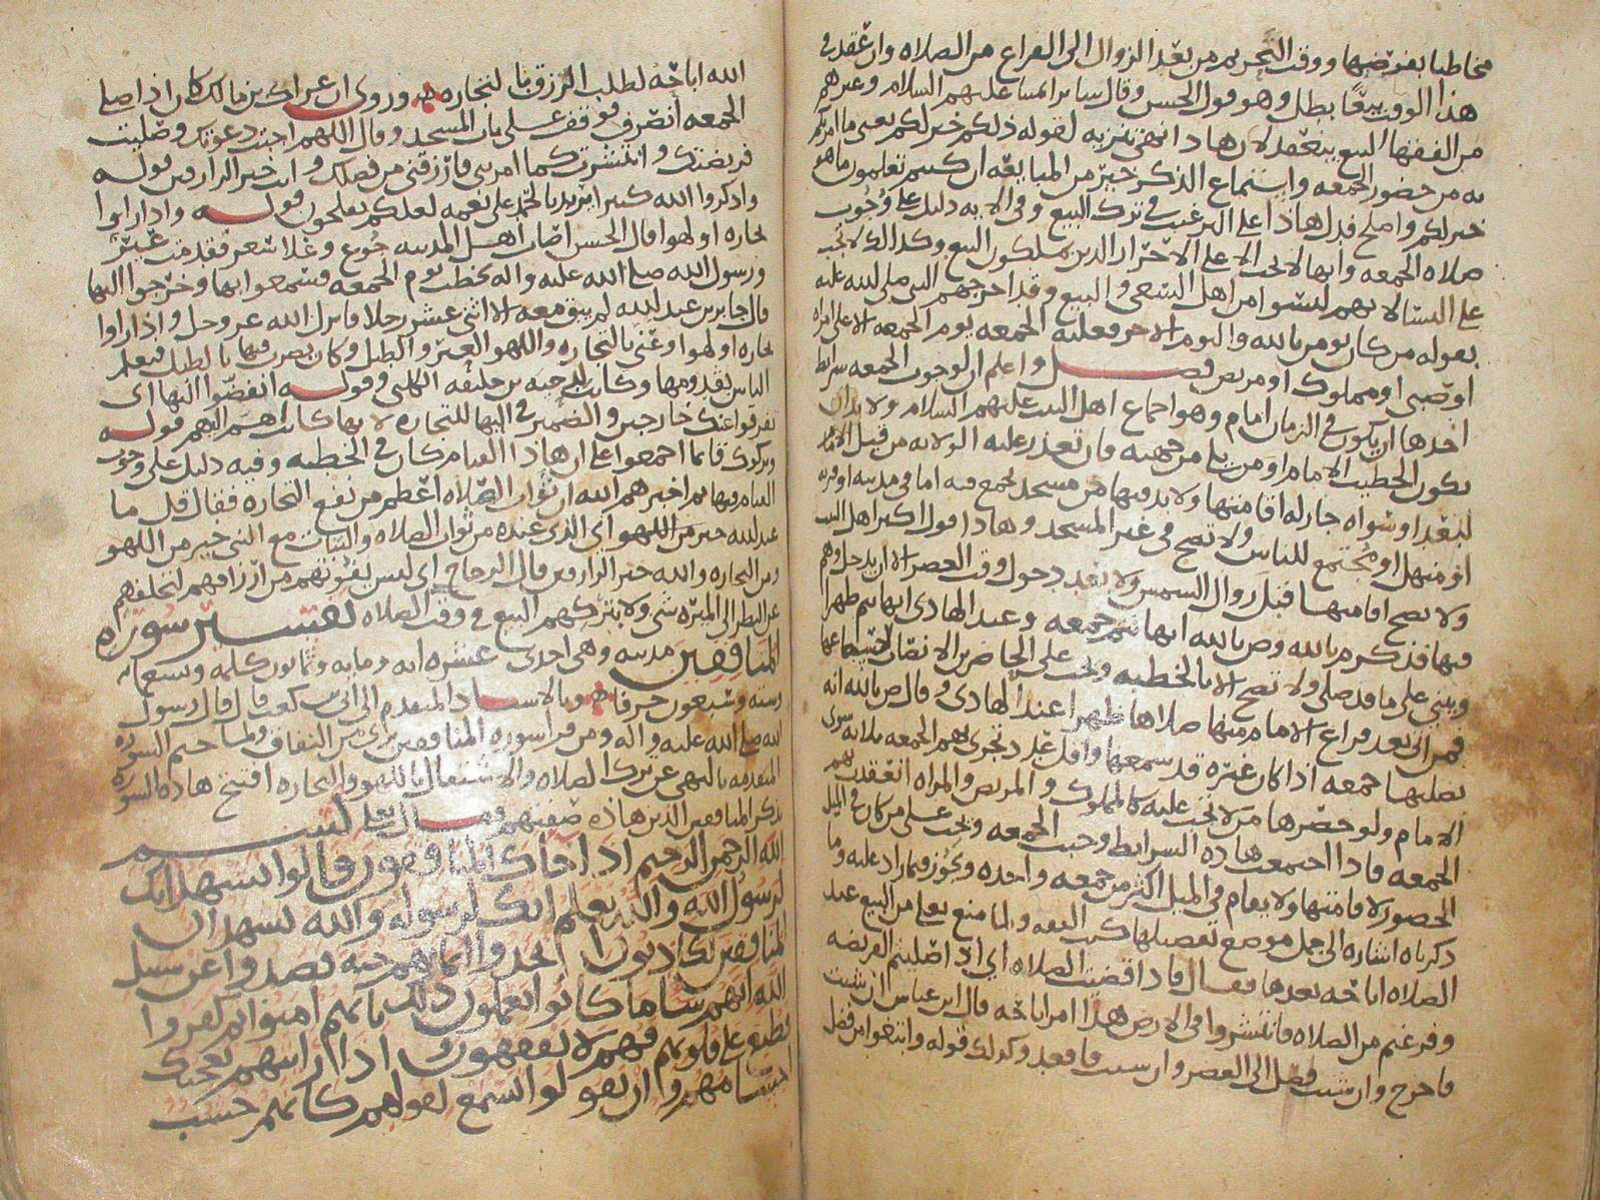 مخاطبا بفرضها ووقت التحريم من بعد الزوال الى الفراغ من الصلاه وان عقد في
هذا الوقت بيعًا بطل وهو قول الحسن وقال سائر العلما عليهم السلام وغيرهم
من الفقها البيع ينعقد لان هاذا نهي تنزيه لقوله ذلكم خير لكم يعني ما امرتكم
به من حضور الجمعه واستماع الذكر خير من المبايعه ان كنتم تعلمون ما هو
خير لكم واصلح فدل هاذا على الترغيب في ترك البيع وفي الايه دليل على وجوب
صلاه الجمعه وانها لا تجب الا على الاحرار الذين يملكون البيع وكذالك لا تجب
على النسا لانهم ليسوا من اهل السعي والبيع وقد اخرجهم النبي صلى الله عليه
بقوله من كان يومن بالله واليوم الاخر فعليه الجمعه يوم الجمعه الا على امراه
او صبي او مملوك او مريض فصل واعلم ان لوجوب الجمعه شرائط
احدها ان يكون في الزمان امام وهو اجماع اهل البيت عليهم السلام ولا بد ان
يكون الخطيب الامام او من يلي من جهته فان تعذر عليه الولايه من قبل الامام
لبعد او سواه جاز له اقامتها ولا بد فيها من مسجد يجمع فيه اما في مدينه او قريه
او منهل او مجتمع للناس ولا تصح في غير المسجد وهاذا قول اكثر اهل البيت
ولا تصح اقامتها قبل زوال الشمس ولا بعد دخول وقت العصر الا ان يدخل وهم
فيها فذكر م بالله وص بالله انها تتم جمعه وعند الهادي انها تتم ظهرا
ويبني على ما قد صلى ولا تصح الا بالخطبه ويجب على الحاضرين الانصات
فمن اتى بعد فراغ الامام منها صلاها ظهرا عند الهادي وقال ص بالله انه
يصليها جمعه اذا كان غيره قد سمعها واقل عدد تجزي بهم الجمعه ثلاثه سوى
الامام ولو حضرها من لا تجب عليه كالمملوك والمريض والمراه انعقدت بهم
الجمعه فاذا اجتمعت هاذه الشرائط وجبت الجمعه وتجب على من كان في الميل
الحضور لاقامتها ولا يقام في الميل اكثر من جمعه واحده وتجوز فيما زاد عليه وما
ذكرناه اشاره الى جمل موضع تفصيلها كتب الفقه ولما منع تعالى من البيع عند
الصلاه اباحه بعدها فقال فاذا قضيت الصلاه اي اذا صليتم الفريضه
وفرغتم من الصلاه فانتشروا في الارض هذا امر اباحه قال ابن عباس ان شئت
فاخرج وان شئت فصل الى العصر وان شئت فاقعد وكذلك قوله وابتغوا من فضل
الله اباحه لطلب الرزق بالتجاره وروي ان عراك بن مالك كان اذا صلى
الجمعه انصرف فوقف على باب المسجد وقال اللهم اجبت دعوتك وصليت
فريضتك وانتشرت كما امرتني فارزقني من فضلك وانت خير الرازقين قوله
واذكروا الله كثيرا يريد بالحمد على نعمه لعلكم تفلحون قوله واذا راوا
تجاره او لهوا قال الحسن اصاب اهل المدينه جوع وغلا سعر فقدمت عير
ورسول الله صلى الله عليه واله يخطب يوم الجمعه فسمعوا بها وخرجوا اليها
قال جابر بن عبد الله لم يبق معه الا اثني عشر رجلا فانزل الله عز وجل واذا راوا
تجاره او لهوا وعني بالتجاره واللهو العير والطبل وكان يضرب فيها بالطبل فيعلم
الناس بقدومها وكانت لدحيه بن خليفه الكلبي وقوله انفضوا اليها اي
تفرقوا عنك خارجين والضمير في اليها للتجاره لانها كانت اهم اليهم قوله
وتركوك قائما اجمعوا على ان هاذا القيام كان في الخطبه وفيه دليل على وجوب
القيام فيها ثم اخبرهم الله ان ثواب الصلاه اعظم من نفع التجاره فقال قل ما
عند الله خير من اللهو اي الذي عنده من ثواب الصلاه والثبات مع النبي خير من اللهو
ومن التجاره والله خير الرازقين قال الزجاج اي ليس يفوتهم من ارزاقهم لتخلفهم
عن النظر الى الميره شي ولا بتركهم البيع في وقت الصلاه تفسير سوره
المنافقين مدنيه وهي احدى عشره ايه ومايه وثمانون كلمه وسبعمايه
وسته وسبعون حرفا وبالاسناد المتقدم الى ابي بن كعب قال قال رسول
الله صلى الله عليه واله ومن قرا سوره المنافقين برئ من النفاق ولما ختم السوره
المتقدمه بالنهي عن ترك الصلاه والاشتغال باللهو والتجاره افتتح هاذه السوره
بذكر المنافقين الذين هاذه صفتهم وقال تعالى بسم
الله الرحمن الرحيم اذا جاك المنافقون قالوا نشهد انك
لرسول الله والله يعلم انك لرسوله والله يشهد ان
المنافقين لكاذبون اتخذوا ايمانهم جنه فصدوا عن سبيل
الله انهم سا ما كانوا يعملون ذلك بانهم امنوا ثم كفروا
فطبع على قلوبهم فهم لا يفقهون واذا رايتهم تعجبك
اجسامهم وان يقولوا تسمع لقولهم كانهم خشب